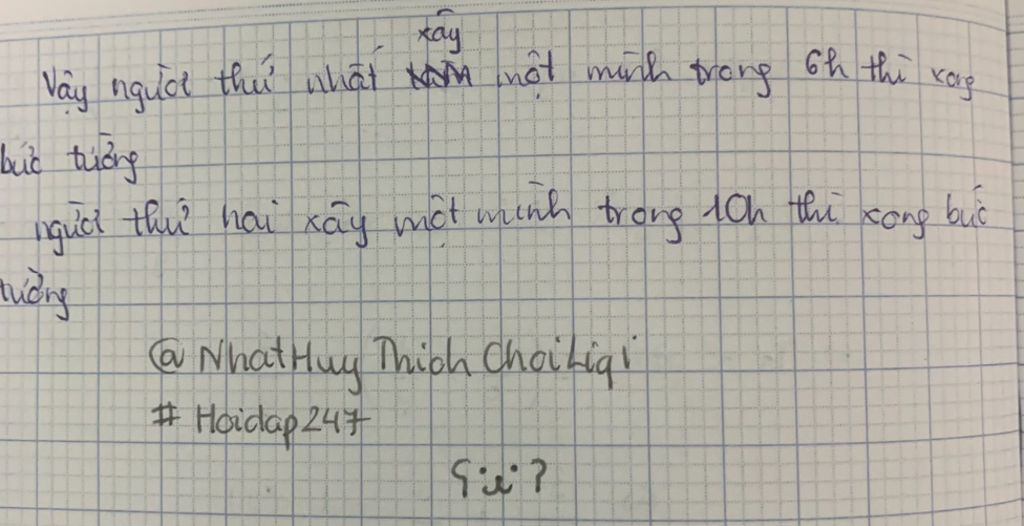 Vậy người thứ nhất xây một mình trong 6h thì xong
bức tường
người thứ hai xây một mình trong 10h thì xong bức
tường
@ NhatHuy Thich Choi Liqi
# Hoidap247